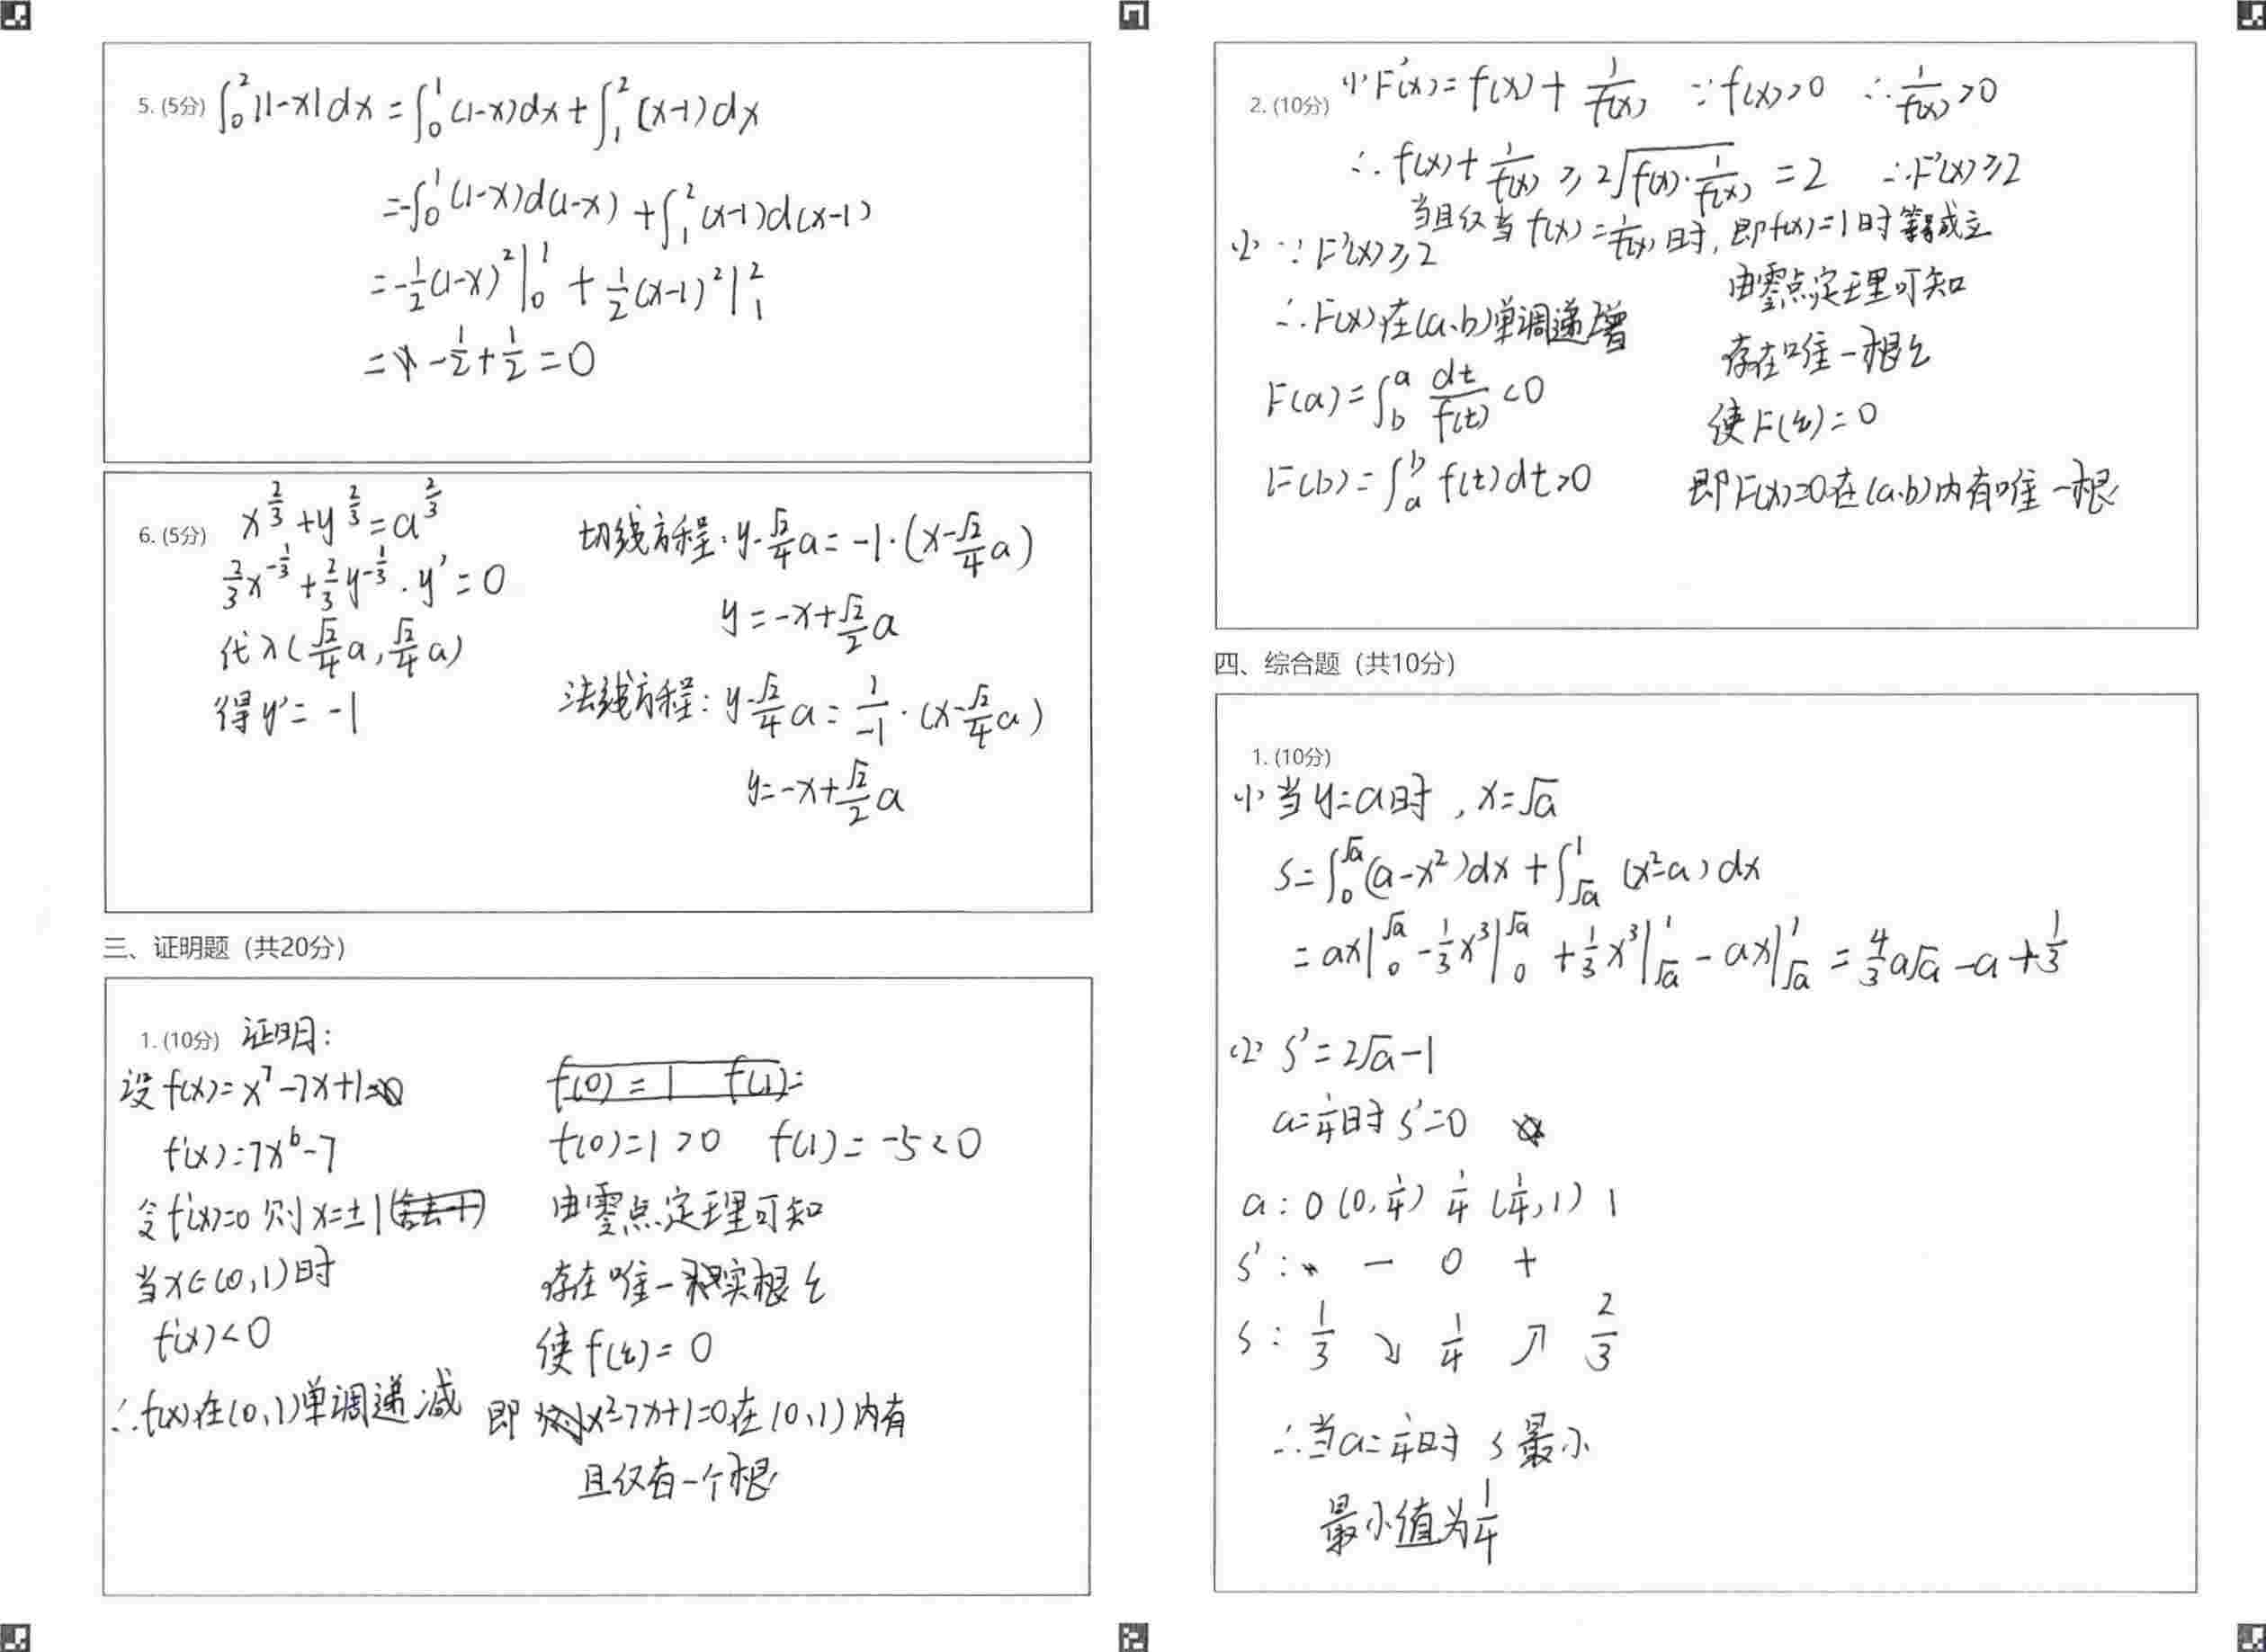 5. (5分) ∫₀² |1-x|dx = ∫₀¹ (1-x)dx + ∫₁² (x-1)dx
= -∫₀¹ (1-x)d(1-x) + ∫₁² (x-1)d(x-1)
= -1/2 (1-x)² |₀¹ + 1/2 (x-1)² |₁²
= - 1/2 + 1/2 = 0
6. (5分) x^(2/3) + y^(2/3) = a^(2/3)
2/3 x^(-1/3) + 2/3 y^(-1/3) · y' = 0
代入(√2/4 a, √2/4 a)
得 y' = -1
切线方程: y - √2/4 a = -1·(x - √2/4 a)
y = -x + √2/2 a
法线方程: y - √2/4 a = 1/-1 · (x - √2/4 a)
y = -x + √2/2 a
三、证明题 (共20分)
1. (10分) 证明:
设 f(x) = x⁷ - 7x + 1
f'(x) = 7x⁶ - 7
令 f'(x)=0 则 x = ±1
当 x∈(0,1)时
f'(x) < 0
∴ f(x)在(0,1)单调递减
f(0) = 1 f(1) =
f(0) = 1 > 0 f(1) = -5 < 0
由零点定理可知
存在唯一实根ξ
使 f(ξ) = 0
即 x²-7x+1=0在(0,1)内有
且仅有一个根
2. (10分) (1) F'(x) = f(x) + 1/f(x) ∵ f(x) > 0 ∴ 1/f(x) > 0
∴ f(x) + 1/f(x) ≥ 2√(f(x)·1/f(x)) = 2 ∴ F'(x) ≥ 2
当且仅当 f(x) = 1/f(x) 时, 即 f(x) = 1 时等号成立
(2) ∵ F'(x) ≥ 2
∴ F(x)在(a,b)单调递增
F(a) = ∫_b^a dt/f(t) < 0
F(b) = ∫_a^b f(t)dt > 0
由零点定理可知
存在唯一根ξ
使 F(ξ) = 0
即 F(x)=0在(a,b)内有唯一根
四、综合题 (共10分)
1. (10分)
(1) 当 y=a时, x=√a
S = ∫₀^√a (a-x²)dx + ∫_√a^1 (x²-a)dx
= ax|₀^√a - 1/3 x³|₀^√a + 1/3 x³|_√a^1 - ax|_√a^1 = 4/3 a√a - a + 1/3
(2) S' = 2√a - 1
a = 1/4 时 S' = 0
a: 0 (0, 1/4) 1/4 (1/4, 1) 1
S': - 0 +
S: 1/3 ↘ 1/4 ↗ 2/3
∴ 当 a = 1/4 时 S 最小
最小值为 1/4